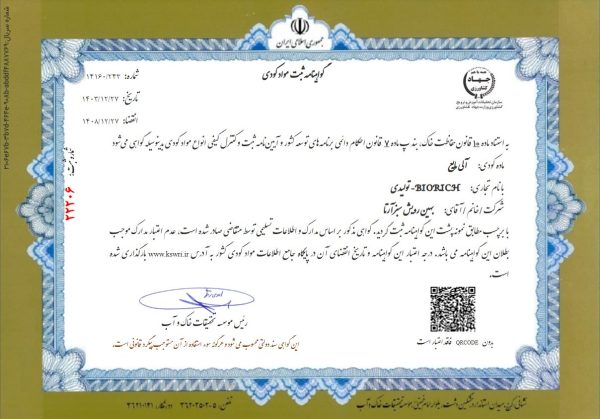 جمهوری اسلامی ایران
گواهینامه ثبت مواد کودی
شماره: ۱۴۱۶۰/۲۳۳
تاریخ: ۱۴۰۳/۱۲/۲۷
انقضاء: ۱۴۰۸/۱۲/۲۷
جهاد
کشاورزی
سازمان تحقیقات، آموزش و ترویج
کشاورزی وزارت جهاد کشاورزی
به استناد ماده ۱۵ قانون حفاظت خاک، بند پ ماده ۷ قانون احکام دائمی برنامه‌های توسعه کشور و آیین‌نامه ثبت و کنترل کیفی انواع مواد کودی بدینوسیله گواهی می‌شود
ماده کودی: آلی مایع
با نام تجاری: BIORICH- تولیدی
شرکت / خانم / آقای: بهین رویش سبز آرتا
با برچسب مطابق نمونه پشت این گواهینامه ثبت گردید. گواهی مذکور بر اساس مدارک و اطلاعات تسلیمی توسط متقاضی صادر شده است، عدم اعتبار مدارک موجب
بطلان این گواهینامه می باشد. درجه اعتبار این گواهینامه و تاریخ انقضای آن در پایگاه جامع اطلاعات مواد کودی کشور به آدرس www.kswri.ir بارگذاری شده
است.
رئیس موسسه تحقیقات خاک و آب
بدون QRCODE فاقد اعتبار است
این گواهی سند دولتی محسوب می شود و هرگونه سوء استفاده از آن مستوجب پیگرد قانونی است.
شماره ثبت: ۲۲۲۰۶
تلفن: ۵-۳۶۲۰۲۰۵ دورنگار: ۳۶۲۱۰۱۲۱